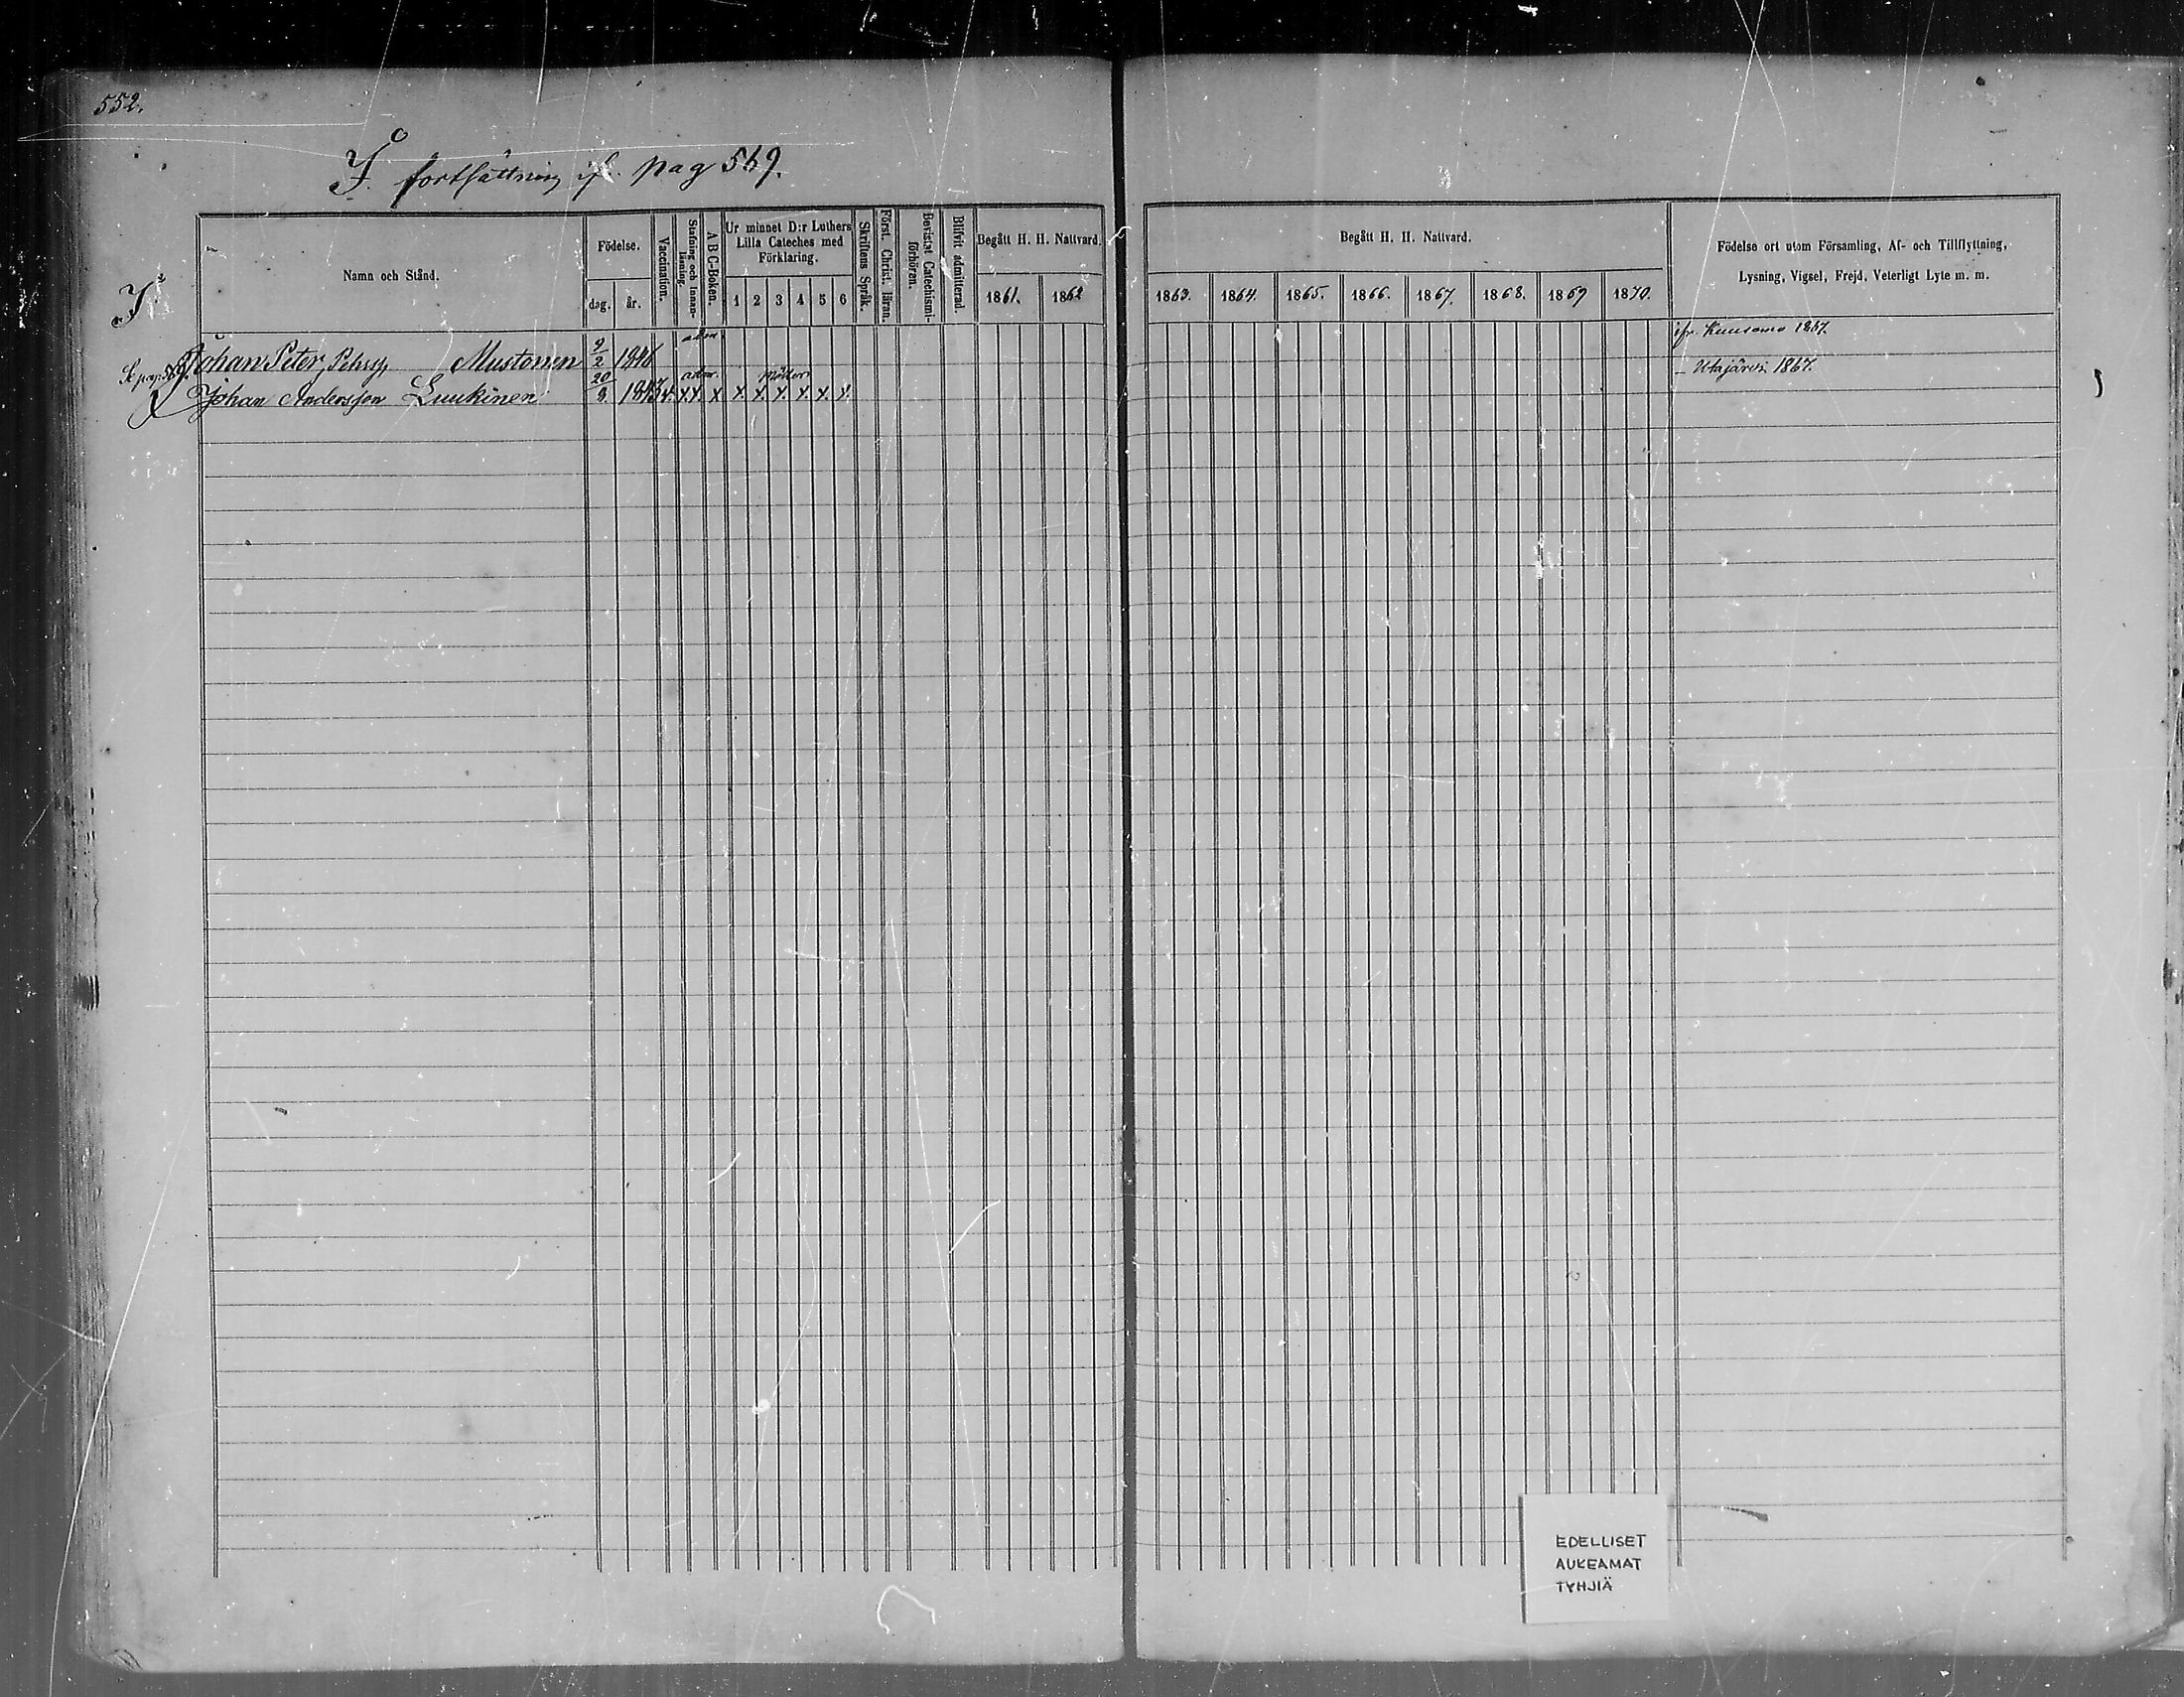 552.
J. fortsättning ifr. pag 569.
Namn och Stånd.
Födelse.
dag. år.
Vaccination.
Stafning och Innan-
läsning.
A B C-Boken.
Ur minnet D:r Luthers
Lilla Cateches med
Förklaring.
1 2 3 4 5 6
Skriftens Språk.
Först. Christ. läran.
Bevistat Catechismi-
förhören.
Blifvit admitterad.
Begått H. H. Nattvard.
1861. 1862
Begått H. H. Nattvard.
1863. 1864. 1865. 1866. 1867. 1868. 1869 1870.
Födelse ort utom Församling, Af- och Tillflyttning,
Lysning, Vigsel, Frejd, Veterligt Lyte m. m.
J.
Johan Peter Pehrss. Mustonen 9/2 1846 adm. ifr. Kuusamo 1867.
Se pag: 569.
Johan Andersson Luukinen 20/9. 1847 v. x x. x x. x. x. x. x. x. adm. – Utajärvi 1867.
EDELLISET
AUKEAMAT
TYHJIÄ